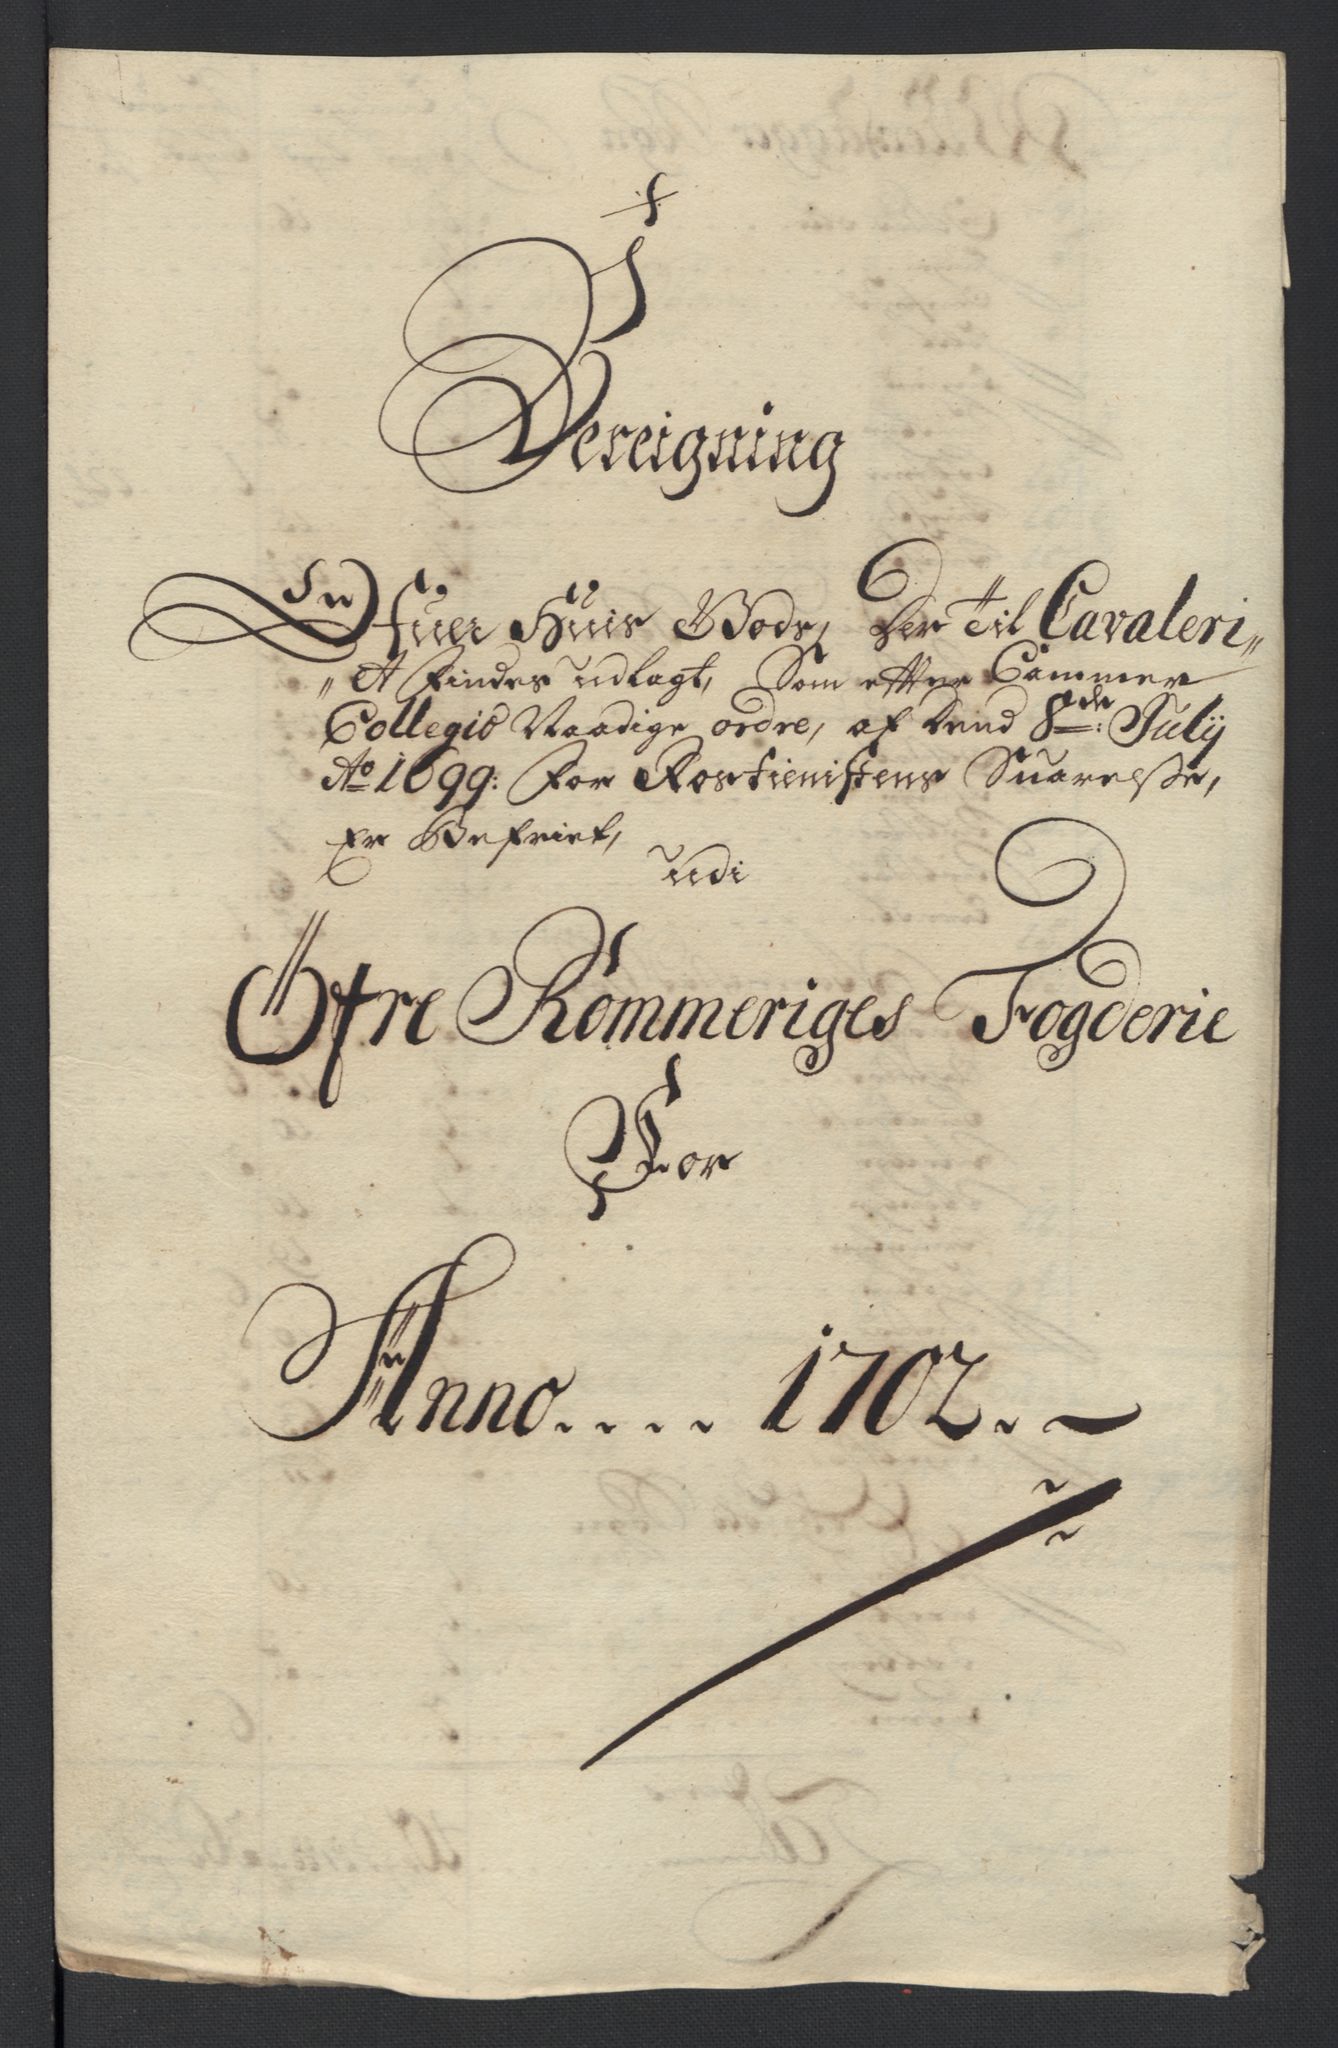 Bereigning
Ofuer Huis Gods, der til Cavaleri„
„et findes udlagt, Som effter Cammer
Collegio Naadige ordre, af dend 8de: July
Ao 1699: for Rostienistens Suarelsse,
er Befriet,
udi
Öfre Rommeriges Fogderie
For
Anno.... 1702.